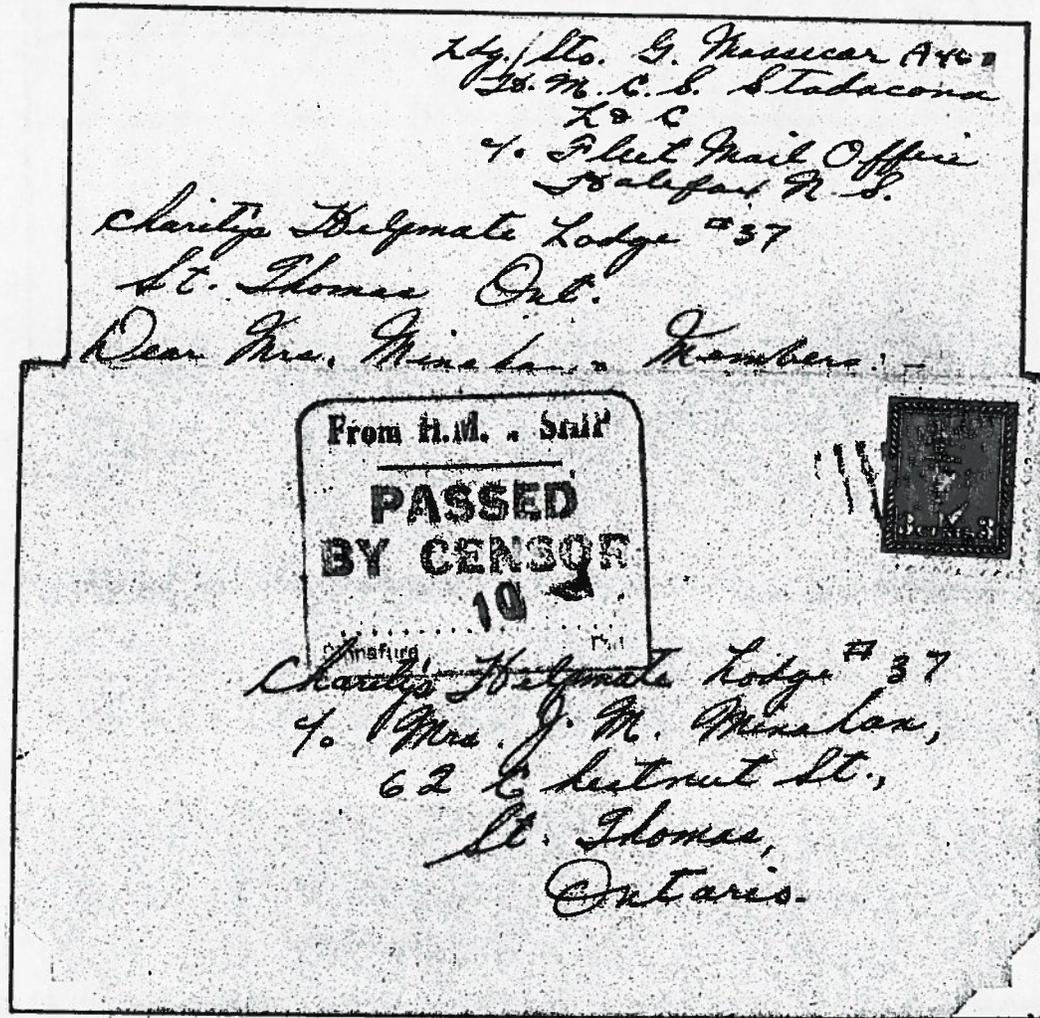 Ldg/Sto. G. Massecar
H. M. C. S. Stadacona
L & C
℅ Fleet Mail Office
Halifax N. S.
Charity's Helpmate Lodge #37
St. Thomas Ont.
Dear Mrs. Minahan & Members: -
From H.M. . Ship
PASSED
BY CENSOR
10
Signature
3 CENTS 3
Charity's Helpmate Lodge #37
℅ Mrs. J. M. Minahan,
62 Chestnut St.,
St. Thomas,
Ontario.